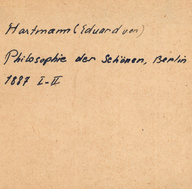 Hartmann (Eduard von)
Philosophie der Schönen, Berlin
1887 I-II